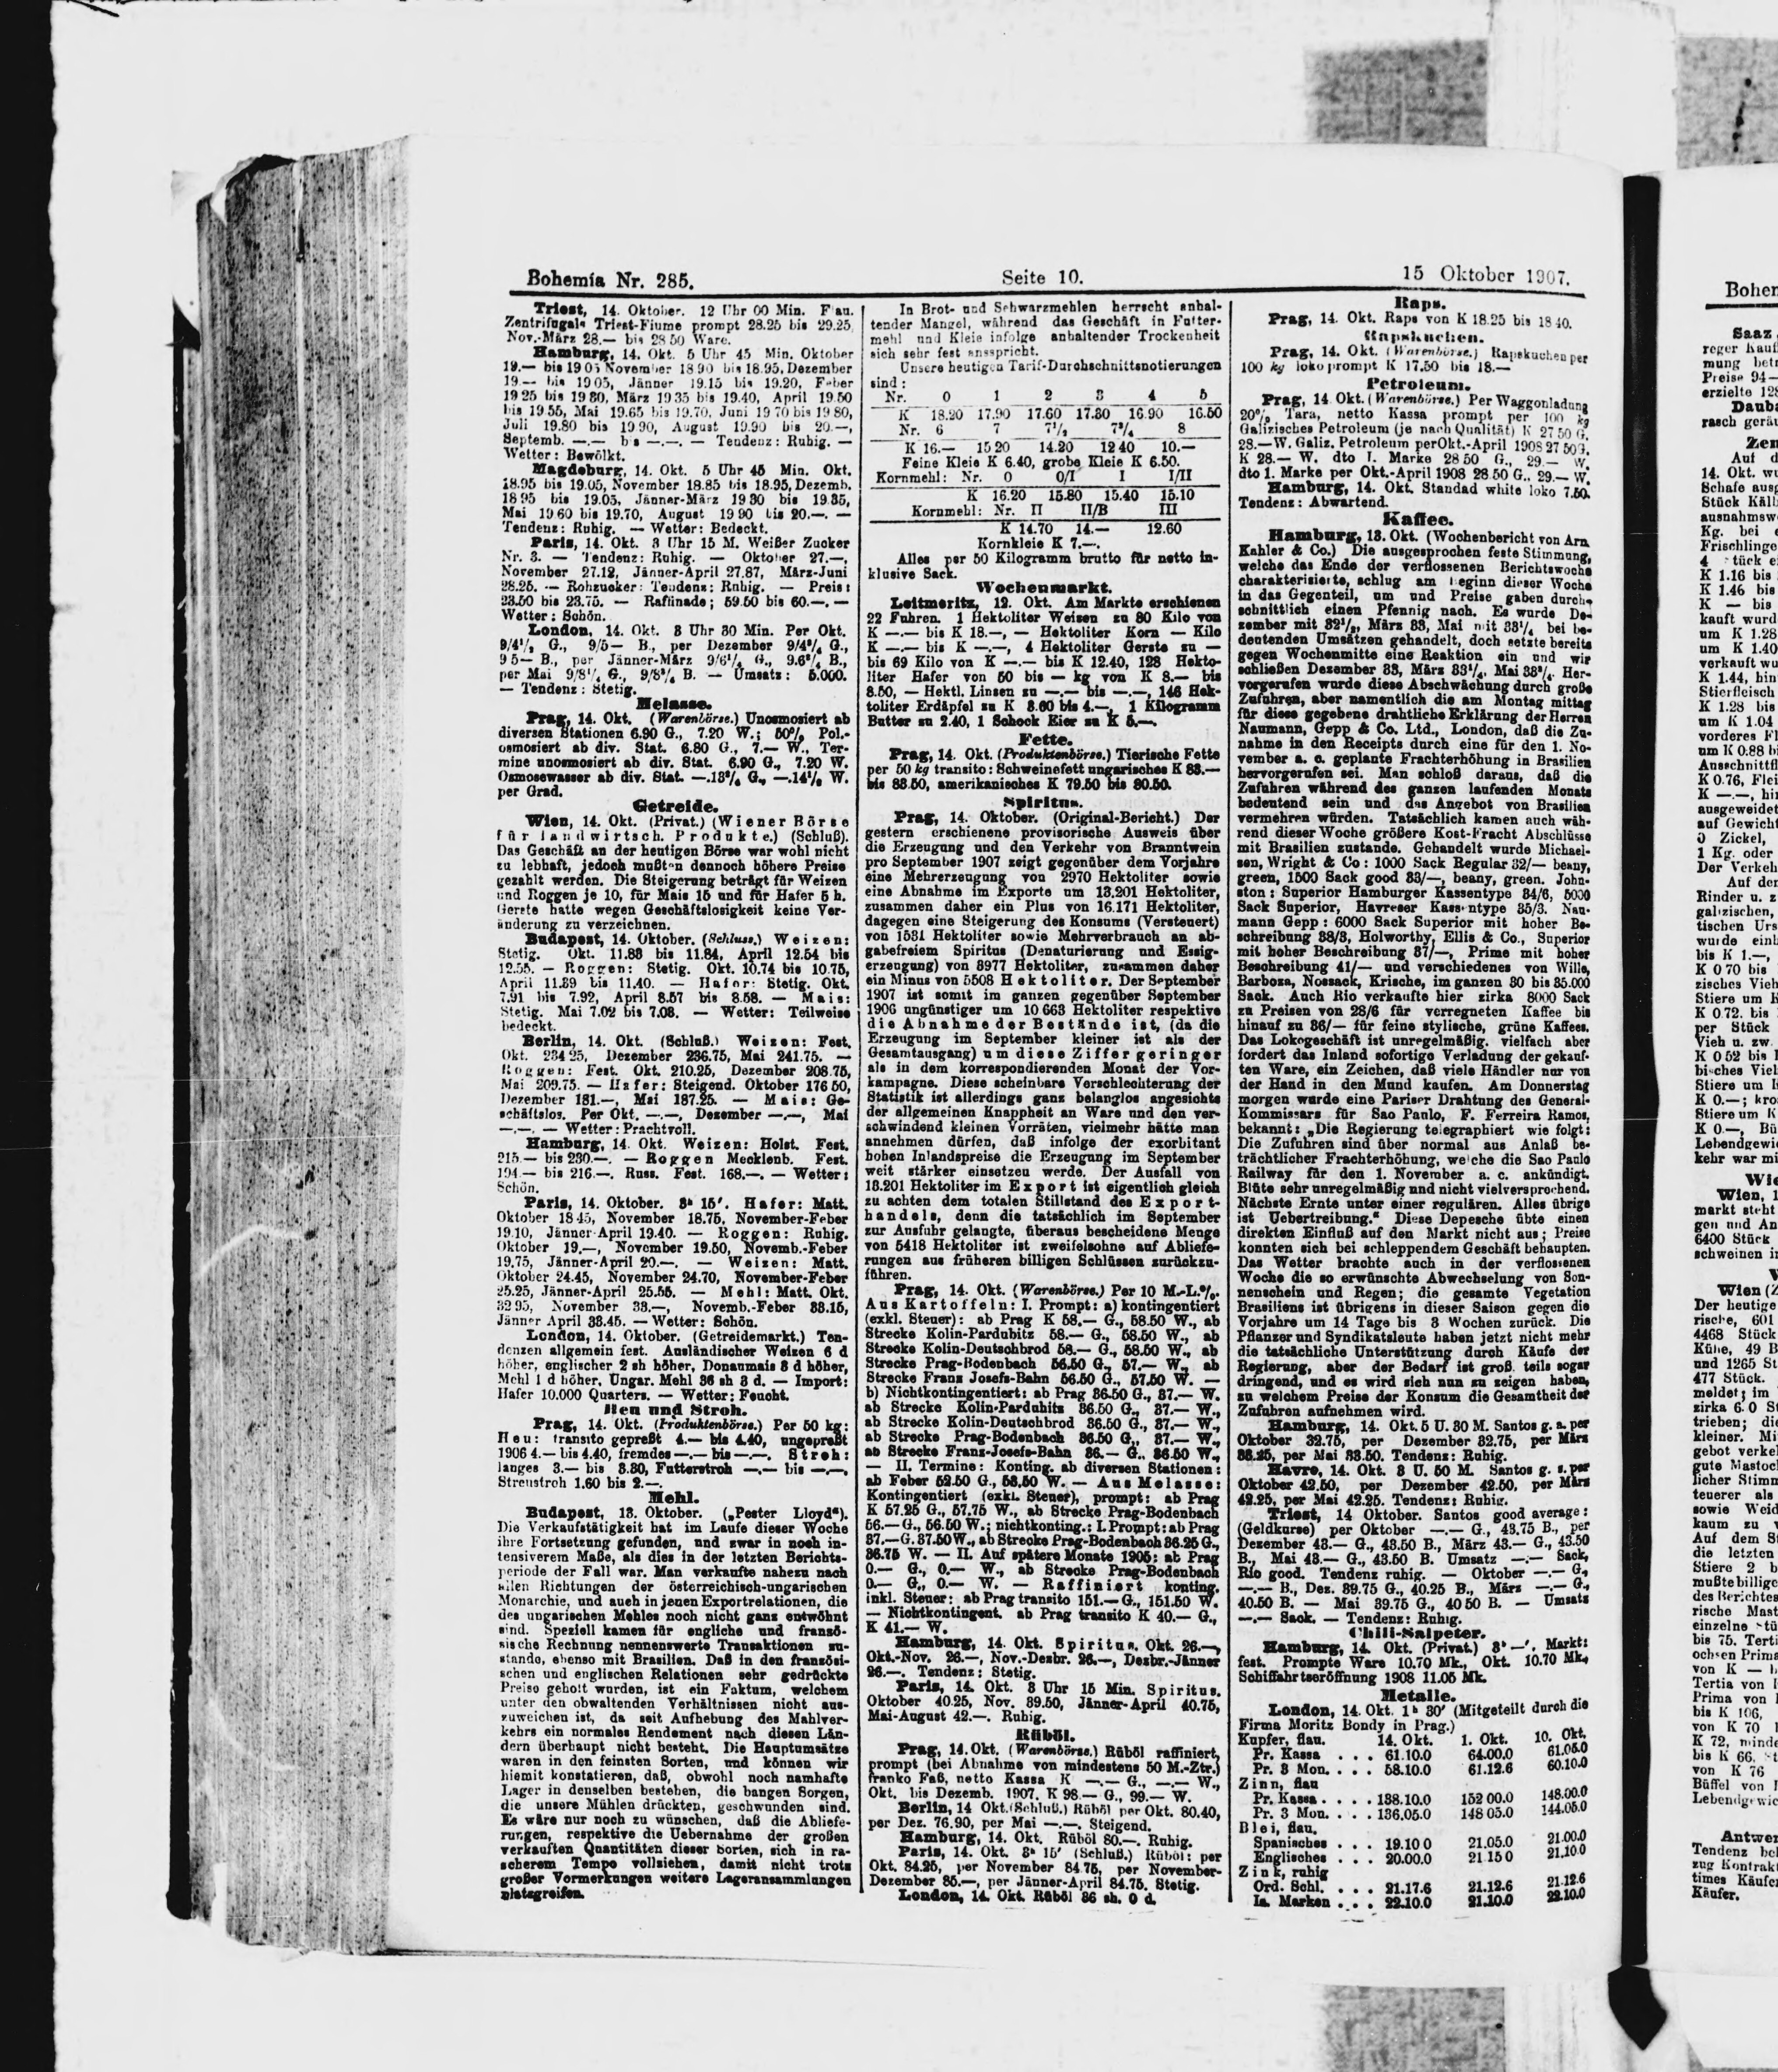 Bohemia Nr. 285.
Seite 10.
15 Oktober 1907.
Triest, 14. Oktober. 12 Uhr 00 Min. Flau.
Zentrifugals Triest-Fiume prompt 28.25 bis 29.25,
Nov.-März 28.— bis 28 50 Ware.
Hamburg, 14. Okt. 5 Uhr 45 Min. Oktober
19.— bis 19 05 November 18 90 bis 18.95, Dezember
19.— bis 19 05, Jänner 19.15 bis 19.20, Feber
19 25 bis 19 30, März 19 35 bis 19.40, April 19.50
bis 19 55, Mai 19.65 bis 19.70, Juni 19 70 bis 19 80,
Juli 19.80 bis 19 90, August 19.90 bis 20.—,
Septemb. —.— bis —.—. — Tendenz: Ruhig. —
Wetter: Bewölkt.
Magdeburg, 14. Okt. 5 Uhr 45 Min. Okt.
18.95 bis 19.05, November 18.85 bis 18.95, Dezemb.
18 95 bis 19.05, Jänner-März 19 30 bis 19.35,
Mai 19 60 bis 19.70, August 19 90 bis 20.—. —
Tendenz: Ruhig. — Wetter: Bedeckt.
Paris, 14. Okt. 3 Uhr 15 M. Weißer Zucker
Nr. 3. — Tendenz: Ruhig. — Oktober 27.—,
November 27.12, Jänner-April 27.87, März-Juni
28.25. — Rohzucker: Tendenz: Ruhig. — Preis:
23.50 bis 23.75. — Raffinade; 59.50 bis 60.—. —
Wetter: Schön.
London, 14. Okt. 3 Uhr 30 Min. Per Okt.
9/4½ G., 9/5— B., per Dezember 9/4¾ G.,
9 5— B., per Jänner-März 9/6¼ G., 9.6¾ B.,
per Mai 9/8¼ G., 9/8¾ B. — Umsatz: 5.000.
— Tendenz: Stetig.
Melasse.
Prag, 14. Okt. (Warenbörse.) Unosmosiert ab
diversen Stationen 6.90 G., 7.20 W.; 50% Pol.-
osmosiert ab div. Stat. 6.80 G., 7.— W., Ter-
mine unosmosiert ab div. Stat. 6.90 G., 7.20 W.
Osmosewasser ab div. Stat. —.13¾ G., —.14¼ W.
per Grad.
Getreide.
Wien, 14. Okt. (Privat.) (Wiener Börse
für landwirtsch. Produkte.) (Schluß).
Das Geschäft an der heutigen Börse war wohl nicht
zu lebhaft, jedoch mußten dennoch höhere Preise
gezahlt werden. Die Steigerung beträgt für Weizen
und Roggen je 10, für Mais 15 und für Hafer 5 h.
Gerste hatte wegen Geschäftslosigkeit keine Ver-
änderung zu verzeichnen.
Budapest, 14. Oktober. (Schluss.) Weizen:
Stetig. Okt. 11.83 bis 11.84, April 12.54 bis
12.55. — Roggen: Stetig. Okt. 10.74 bis 10.75,
April 11.39 bis 11.40. — Hafer: Stetig. Okt.
7.91 bis 7.92, April 8.57 bis 8.58. — Mais:
Stetig. Mai 7.02 bis 7.03. — Wetter: Teilweise
bedeckt.
Berlin, 14. Okt. (Schluß.) Weizen: Fest.
Okt. 234 25, Dezember 236.75, Mai 241.75. —
Roggen: Fest. Okt. 210.25, Dezember 208.75,
Mai 209.75. — Hafer: Steigend. Oktober 176 50,
Dezember 181.—, Mai 187.25. — Mais: Ge-
schäftslos. Per Okt. —.—, Dezember —.—, Mai
—.—. — Wetter: Prachtvoll.
Hamburg, 14. Okt. Weizen: Holst. Fest.
215.— bis 230.—. — Roggen Mecklenb. Fest.
194.— bis 216.—. Russ. Fest. 168.—. — Wetter:
Schön.
Paris, 14. Oktober. 3h 15'. Hafer: Matt.
Oktober 18 45, November 18.75, November-Feber
19.10, Jänner-April 19.40. — Roggen: Ruhig.
Oktober 19.—, November 19.50, Novemb.-Feber
19.75, Jänner-April 20.—. — Weizen: Matt.
Oktober 24.45, November 24.70, November-Feber
25.25, Jänner-April 25.55. — Mehl: Matt. Okt.
32 95, November 33.—, Novemb.-Feber 33.15,
Jänner April 33.45. — Wetter: Schön.
London, 14. Oktober. (Getreidemarkt.) Ten-
denzen allgemein fest. Ausländischer Weizen 6 d
höher, englischer 2 sh höher, Donaumais 3 d höher,
Mehl 1 d höher, Ungar. Mehl 36 sh 3 d. — Import:
Hafer 10.000 Quarters. — Wetter: Feucht.
Heu und Stroh.
Prag, 14. Okt. (Produktenbörse.) Per 50 kg:
Heu: transito gepreßt 4.— bis 4.40, ungepreßt
1906 4.— bis 4.40, fremdes —.— bis —.—. Stroh:
langes 3.— bis 3.30, Futterstroh —.— bis —.—,
Streustroh 1.60 bis 2.—.
Mehl.
Budapest, 13. Oktober. („Pester Lloyd“).
Die Verkaufstätigkeit hat im Laufe dieser Woche
ihre Fortsetzung gefunden, und zwar in noch in-
tensiverem Maße, als dies in der letzten Berichts-
periode der Fall war. Man verkaufte nahezu nach
allen Richtungen der österreichisch-ungarischen
Monarchie, und auch in jenen Exportrelationen, die
des ungarischen Mehles noch nicht ganz entwöhnt
sind. Speziell kamen für engliche und franzö-
sische Rechnung nennenswerte Transaktionen zu-
stande, ebenso mit Brasilien. Daß in den französi-
schen und englischen Relationen sehr gedrückte
Preise geholt wurden, ist ein Faktum, welchem
unter den obwaltenden Verhältnissen nicht aus-
zuweichen ist, da seit Aufhebung des Mahlver-
kehrs ein normales Rendement nach diesen Län-
dern überhaupt nicht besteht. Die Hauptumsätze
waren in den feinsten Sorten, und können wir
hiemit konstatieren, daß, obwohl noch namhafte
Lager in denselben bestehen, die bangen Sorgen,
die unsere Mühlen drückten, geschwunden sind.
Es wäre nur noch zu wünschen, daß die Abliefe-
rungen, respektive die Uebernahme der großen
verkauften Quantitäten dieser Sorten, sich in ra-
scherem Tempo vollziehen, damit nicht trotz
großer Vormerkungen weitere Lageransammlungen
platzgreifen.
In Brot- und Schwarzmehlen herrscht anhal-
tender Mangel, während das Geschäft in Futter-
mehl und Kleie infolge anhaltender Trockenheit
sich sehr fest ausspricht.
Unsere heutigen Tarif-Durchschnittsnotierungen
sind:
Nr. 0 1 2 3 4 5
K 18.20 17.90 17.60 17.30 16.90 16.50
Nr. 6 7 7½ 7¾ 8
K 16.— 15 20 14.20 12 40 10.—
Feine Kleie K 6.40, grobe Kleie K 6.50.
Kornmehl: Nr. 0 0/I I I/II
K 16.20 15.80 15.40 15.10
Kornmehl: Nr. II II/B III
K 14.70 14.— 12.60
Kornkleie K 7.—.
Alles per 50 Kilogramm brutto für netto in-
klusive Sack.
Wochenmarkt.
Leitmeritz, 12. Okt. Am Markte erschienen
22 Fuhren. 1 Hektoliter Weizen zu 80 Kilo von
K —.— bis K 18.—, — Hektoliter Korn — Kilo
K —.— bis K —.—, 4 Hektoliter Gerste zu —
bis 69 Kilo von K —.— bis K 12.40, 128 Hekto-
liter Hafer von 50 bis — kg von K 8.— bis
8.50, — Hektl. Linsen zu —.— bis —.—, 146 Hek-
toliter Erdäpfel zu K 3.60 bis 4.—, 1 Kilogramm
Butter zu 2.40, 1 Schock Eier zu K 5.—.
Fette.
Prag, 14. Okt. (Produktenbörse.) Tierische Fette
per 50 kg transito: Schweinefett ungarisches K 83.—
bis 83.50, amerikanisches K 79.50 bis 80.50.
Spiritus.
Prag, 14. Oktober. (Original-Bericht.) Der
gestern erschienene provisorische Ausweis über
die Erzeugung und den Verkehr von Branntwein
pro September 1907 zeigt gegenüber dem Vorjahre
eine Mehrerzeugung von 2970 Hektoliter sowie
eine Abnahme im Exporte um 13.201 Hektoliter,
zusammen daher ein Plus von 16.171 Hektoliter,
dagegen eine Steigerung des Konsums (Versteuert)
von 1531 Hektoliter sowie Mehrverbrauch an ab-
gabefreiem Spiritus (Denaturierung und Essig-
erzeugung) von 3977 Hektoliter, zusammen daher
ein Minus von 5508 Hektoliter. Der September
1907 ist somit im ganzen gegenüber September
1906 ungünstiger um 10 663 Hektoliter respektive
die Abnahme der Bestände ist, (da die
Erzeugung im September kleiner ist als der
Gesamtausgang) um diese Ziffer geringer
als in dem korrespondierenden Monat der Vor-
kampagne. Diese scheinbare Verschlechterung der
Statistik ist allerdings ganz belanglos angesichts
der allgemeinen Knappheit an Ware und den ver-
schwindend kleinen Vorräten, vielmehr hätte man
annehmen dürfen, daß infolge der exorbitant
hohen Inlandspreise die Erzeugung im September
weit stärker einsetzen werde. Der Ausfall von
13.201 Hektoliter im Export ist eigentlich gleich
zu achten dem totalen Stillstand des Export-
handels, denn die tatsächlich im September
zur Ausfuhr gelangte, überaus bescheidene Menge
von 5418 Hektoliter ist zweifelsohne auf Abliefe-
rungen aus früheren billigen Schlüssen zurückzu-
führen.
Prag, 14. Okt. (Warenbörse.) Per 10 M.-L.%.
Aus Kartoffeln: I. Prompt: a) kontingentiert
(exkl. Steuer): ab Prag K 58.— G., 58.50 W., ab
Strecke Kolin-Pardubitz 58.— G., 58.50 W., ab
Strecke Kolin-Deutschbrod 58.— G., 58.50 W., ab
Strecke Prag-Bodenbach 56.50 G., 57.— W., ab
Strecke Franz Josefs-Bahn 56.50 G., 57.50 W. —
b) Nichtkontingentiert: ab Prag 36.50 G., 37.— W.
ab Strecke Kolin-Pardubitz 36.50 G., 37.— W.,
ab Strecke Kolin-Deutschbrod 36.50 G., 37.— W.,
ab Strecke Prag-Bodenbach 36.50 G., 37.— W.,
ab Strecke Franz-Josefs-Bahn 36.— G., 36.50 W.,
— II. Termine: Konting. ab diversen Stationen:
ab Feber 52.50 G., 53.50 W. — Aus Melasse:
Kontingentiert (exkl. Steuer), prompt: ab Prag
K 57.25 G., 57.75 W., ab Strecke Prag-Bodenbach
56.— G., 56.50 W.; nichtkonting.: I. Prompt: ab Prag
37.— G. 37.50 W., ab Strecke Prag-Bodenbach 36.25 G.,
36.75 W. — II. Auf spätere Monate 1905: ab Prag
0.— G., 0.— W., ab Strecke Prag-Bodenbach
0.— G., 0.— W. — Raffiniert konting.
inkl. Steuer: ab Prag transito 151.— G., 151.50 W.
— Nichtkontingent. ab Prag transito K 40.— G.,
K 41.— W.
Hamburg, 14. Okt. Spiritus. Okt. 26.—,
Okt.-Nov. 26.—, Nov.-Dezbr. 26.—, Dezbr.-Jänner
26.—. Tendenz: Stetig.
Paris, 14. Okt. 3 Uhr 15 Min. Spiritus.
Oktober 40.25, Nov. 39.50, Jänner-April 40.75,
Mai-August 42.—. Ruhig.
Rüböl.
Prag, 14. Okt. (Warenbörse.) Rüböl raffiniert,
prompt (bei Abnahme von mindestens 50 M.-Ztr.)
franko Faß, netto Kassa K —.— G., —.— W.,
Okt. bis Dezemb. 1907. K 98.— G., 99.— W.
Berlin, 14 Okt. (Schluß.) Rüböl per Okt. 80.40,
per Dez. 76.90, per Mai —.—. Steigend.
Hamburg, 14. Okt. Rüböl 80.—. Ruhig.
Paris, 14. Okt. 3h 15' (Schluß.) Rüböl: per
Okt. 84.25, per November 84.75, per November-
Dezember 85.—, per Jänner-April 84.75. Stetig.
London, 14. Okt. Rüböl 36 sh. 0 d.
Raps.
Prag, 14. Okt. Raps von K 18.25 bis 18 40.
Rapskuchen.
Prag, 14. Okt. (Warenbörse.) Rapskuchen per
100 kg loko prompt K 17.50 bis 18.—
Petroleum.
Prag, 14. Okt. (Warenbörse.) Per Waggonladung
20% Tara, netto Kassa prompt per 100 kg
Galizisches Petroleum (je nach Qualität) K 27 50 G.
28.— W. Galiz. Petroleum per Okt.-April 1908 27 50 G.
K 28.— W. dto I. Marke 28 50 G., 29.— W.
dto 1. Marke per Okt.-April 1908 28.50 G.. 29.— W.
Hamburg, 14. Okt. Standad white loko 7.50.
Tendenz: Abwartend.
Kaffee.
Hamburg, 13. Okt. (Wochenbericht von Arn.
Kahler & Co.) Die ausgesprochen feste Stimmung,
welche das Ende der verflossenen Berichtswoche
charakterisierte, schlug am Beginn dieser Woche
in das Gegenteil, um und Preise gaben durch-
schnittlich einen Pfennig nach. Es wurde De-
zember mit 32½, März 33, Mai mit 33¼ bei be-
deutenden Umsätzen gehandelt, doch setzte bereits
gegen Wochenmitte eine Reaktion ein und wir
schließen Dezember 33, März 33¼, Mai 33¾. Her-
vorgerufen wurde diese Abschwächung durch große
Zufuhren, aber namentlich die am Montag mittag
für diese gegebene drahtliche Erklärung der Herren
Naumann, Gepp & Co. Ltd., London, daß die Zu-
nahme in den Receipts durch eine für den 1. No-
vember a. c. geplante Frachterhöhung in Brasilien
hervorgerufen sei. Man schloß daraus, daß die
Zufuhren während des ganzen laufenden Monats
bedeutend sein und das Angebot von Brasilien
vermehren würden. Tatsächlich kamen auch wäh-
rend dieser Woche größere Kost-Fracht Abschlüsse
mit Brasilien zustande. Gehandelt wurde Michael-
sen, Wright & Co: 1000 Sack Regular 32/— beany,
green, 1500 Sack good 33/—, beany, green. John-
ston: Superior Hamburger Kassentype 34/6, 5000
Sack Superior, Havreser Kassentype 35/3. Nau-
mann Gepp: 6000 Sack Superior mit hoher Be-
schreibung 38/3, Holworthy, Ellis & Co., Superior
mit hoher Beschreibung 37/—, Prime mit hoher
Beschreibung 41/— und verschiedenes von Wille,
Barboza, Nossack, Krische, im ganzen 30 bis 35.000
Sack. Auch Rio verkaufte hier zirka 8000 Sack
zu Preisen von 28/6 für verregneten Kaffee bis
hinauf zu 36/— für feine stylische, grüne Kaffees.
Das Lokogeschäft ist unregelmäßig. vielfach aber
fordert das Inland sofortige Verladung der gekauf-
ten Ware, ein Zeichen, daß viele Händler nur von
der Hand in den Mund kaufen. Am Donnerstag
morgen wurde eine Pariser Drahtung des General-
Kommissars für Sao Paulo, F. Ferreira Ramos,
bekannt: „Die Regierung telegraphiert wie folgt:
Die Zufuhren sind über normal aus Anlaß be-
trächtlicher Frachterhöhung, welche die Sao Paulo
Railway für den 1. November a. c. ankündigt.
Blüte sehr unregelmäßig und nicht vielversprechend.
Nächste Ernte unter einer regulären. Alles übrige
ist Uebertreibung.“ Diese Depesche übte einen
direkten Einfluß auf den Markt nicht aus; Preise
konnten sich bei schleppendem Geschäft behaupten.
Das Wetter brachte auch in der verflossenen
Woche die so erwünschte Abwechselung von Son-
nenschein und Regen; die gesamte Vegetation
Brasiliens ist übrigens in dieser Saison gegen die
Vorjahre um 14 Tage bis 3 Wochen zurück. Die
Pflanzer und Syndikatsleute haben jetzt nicht mehr
die tatsächliche Unterstützung durch Käufe der
Regierung, aber der Bedarf ist groß. teils sogar
dringend, und es wird sich nun zu zeigen haben,
zu welchem Preise der Konsum die Gesamtheit der
Zufuhren aufnehmen wird.
Hamburg, 14. Okt. 5 U. 30 M. Santos g. a. per
Oktober 32.75, per Dezember 32.75, per März
33.25, per Mai 33.50. Tendenz: Ruhig.
Havre, 14. Okt. 3 U. 50 M. Santos g. s. per
Oktober 42.50, per Dezember 42.50, per März
42.25, per Mai 42.25. Tendenz: Ruhig.
Triest, 14 Oktober. Santos good average:
(Geldkurse) per Oktober —.— G., 43.75 B., per
Dezember 43.— G., 43.50 B., März 43.— G., 43.50
B., Mai 43.— G., 43.50 B. Umsatz —.— Sack,
Rio good. Tendenz ruhig. — Oktober —.— G.,
—.— B., Dez. 39.75 G., 40.25 B., März —.— G.,
40.50 B. — Mai 39.75 G., 40 50 B. — Umsats
—.— Sack. — Tendenz: Ruhig.
Chili-Salpeter.
Hamburg, 14. Okt. (Privat.) 3h —'. Markt:
fest. Prompte Ware 10.70 Mk., Okt. 10.70 Mk.,
Schiffahrtseröffnung 1908 11.05 Mk.
Metalle.
London, 14. Okt. 1h 30' (Mitgeteilt durch die
Firma Moritz Bondy in Prag.)
Kupfer, flau. 14. Okt. 1. Okt. 10. Okt.
Pr. Kassa . . . 61.10.0 64.00.0 61.05.0
Pr. 3 Mon. . . . 58.10.0 61.12.6 60.10.0
Zinn, flau
Pr. Kassa . . . . 138.10.0 152 00.0 148.00.0
Pr. 3 Mon. . . . 136.05.0 148 05.0 144.05.0
Blei, flau.
Spanisches . . . 19.10 0 21.05.0 21.00.0
Englisches . . . 20.00.0 21 15 0 21.10.0
Zink, ruhig
Ord. Schl. . . . 21.17.6 21.12.6 21.12.6
Ia. Marken . . . 22.10.0 21.10.0 22.10.0